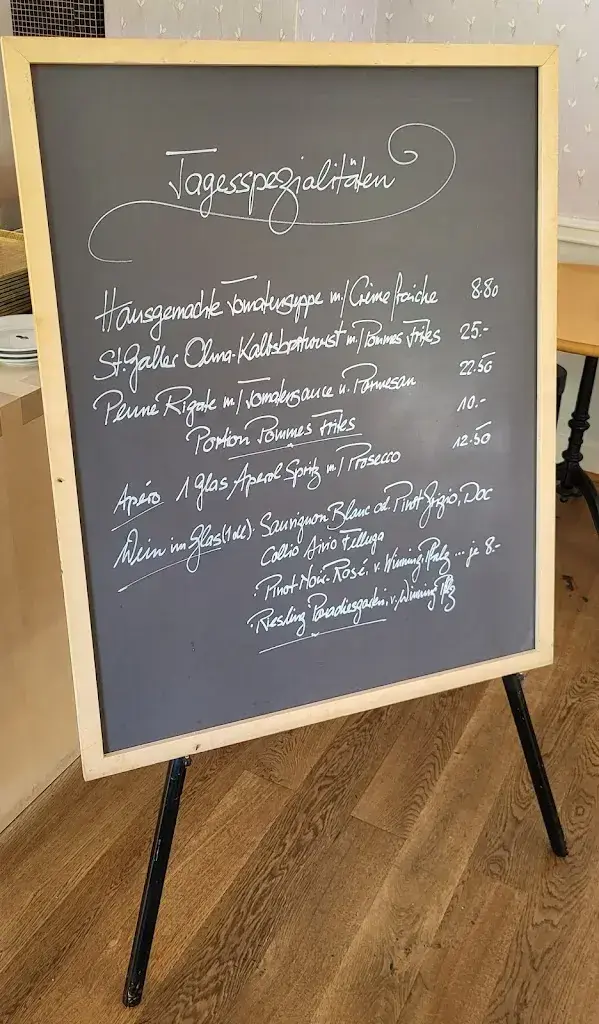 Tagesspezialitäten
Hausgemachte Tomatensuppe m/ Crème fraîche 8.80
St. Galler Olma-Kalbsbratwurst m/ Pommes frites 25.-
Penne Rigate m/ Tomatensauce u. Parmesan 22.50
Portion Pommes Frites 10.-
Apéro 1 Glas Aperol Spritz m/ Prosecco 12.50
Wein im Glas (1 dl): Sauvignon Blanc od. Pinot Grigio, Doc
Collio Livio Felluga
· Pinot-Noir-Rosé, v. Winning, Pfalz ... je 8.-
· Riesling Paradiesgarten, v. Winning Pfalz